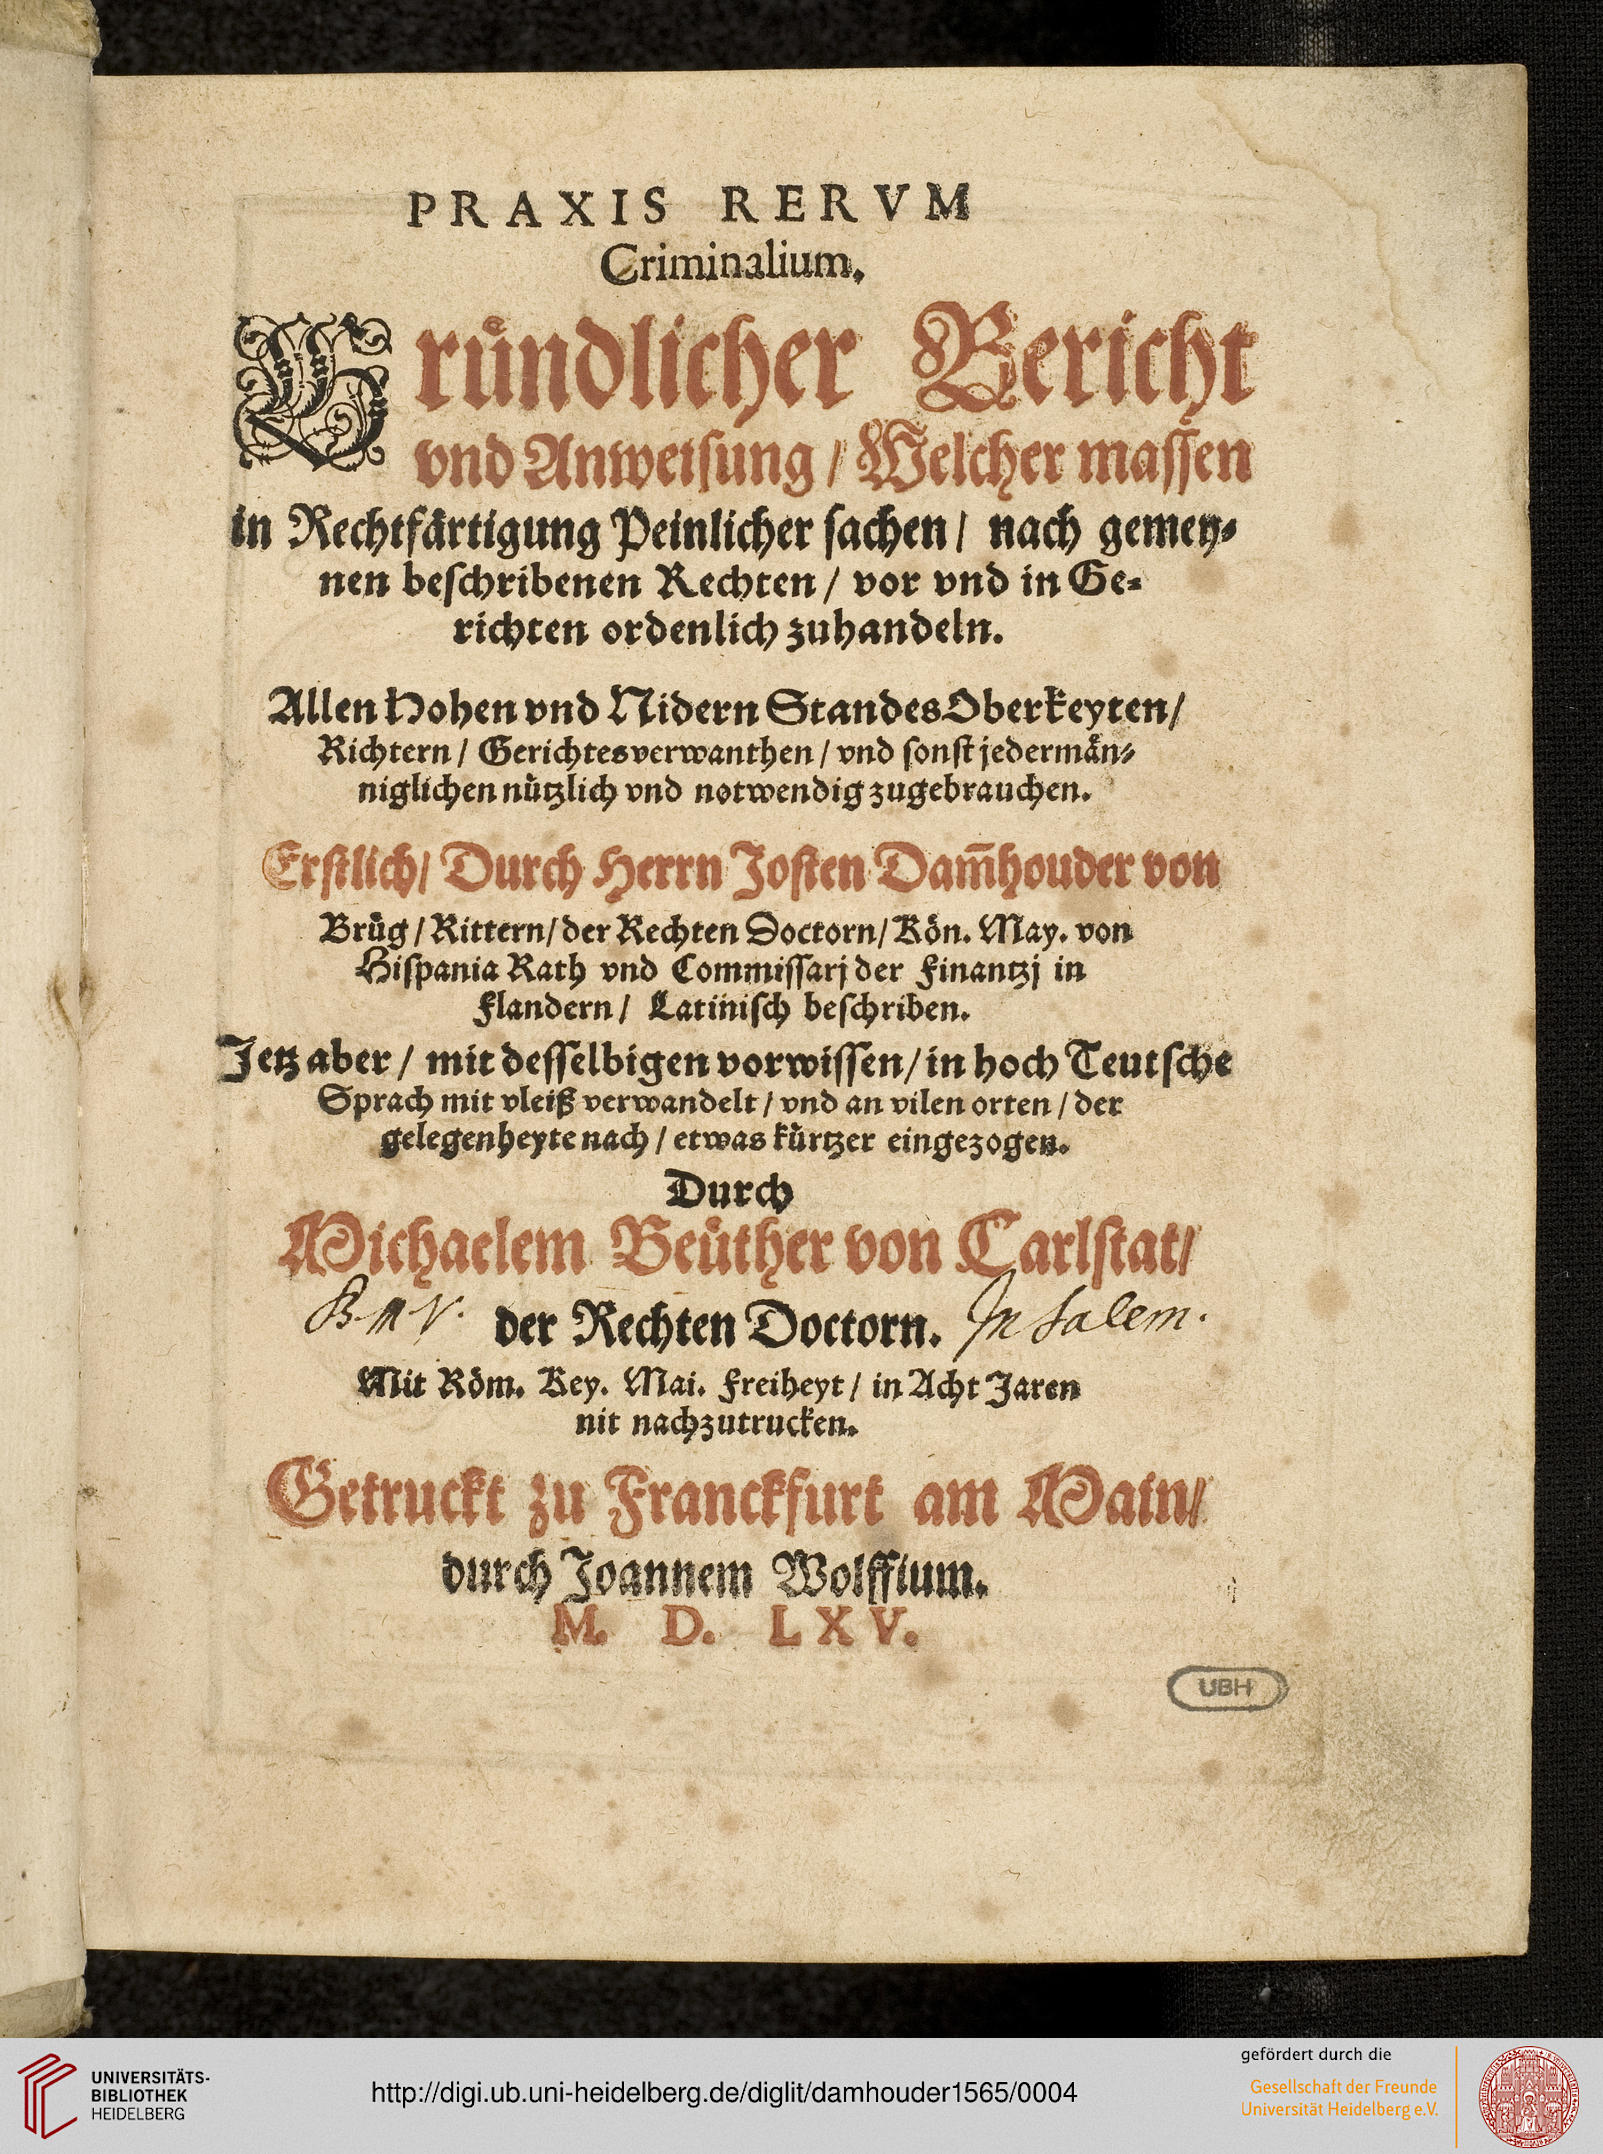 PRAXIS RERVM
Criminalium.
Gruͤndlicher Bericht
vnd Anweisung / Welcher massen
in Rechtfaͤrtigung Peinlicher sachen / nach gemey-
nen beschribenen Rechten / vor vnd in Ge-
richten ordenlich zuhandeln.
Allen Hohen vnd Nidern Standes Oberkeyten /
Richtern / Gerichtesverwanthen / vnd sonst jedermaͤn-
niglichen nuͤtzlich vnd notwendig zugebrauchen.
Erstlich / Durch Herrn Josten Dam̃houder von
Bruͤg / Rittern / der Rechten Doctorn / Koͤn. May. von
Hispania Rath vnd Commissarj der Finantzj in
Flandern / Latinisch beschriben.
Jetz aber / mit desselbigen vorwissen / in hoch Teutsche
Sprach mit vleiß verwandelt / vnd an vilen orten / der
gelegenheyte nach / etwas kuͤrtzer eingezogen.
Durch
Michaelem Beuͤther von Carlstat /
B. M V. der Rechten Doctorn. In Salem.
Mit Roͤm. Key. Mai. Freiheyt / in Acht Jaren
nit nachzutrucken.
Getruckt zu Franckfurt am Main /
durch Joannem Wolffium.
M. D. LXV.
UBH
UNIVERSITÄTS-
BIBLIOTHEK
HEIDELBERG
http://digi.ub.uni-heidelberg.de/diglit/damhouder1565/0004
gefördert durch die
Gesellschaft der Freunde
Universität Heidelberg e.V.